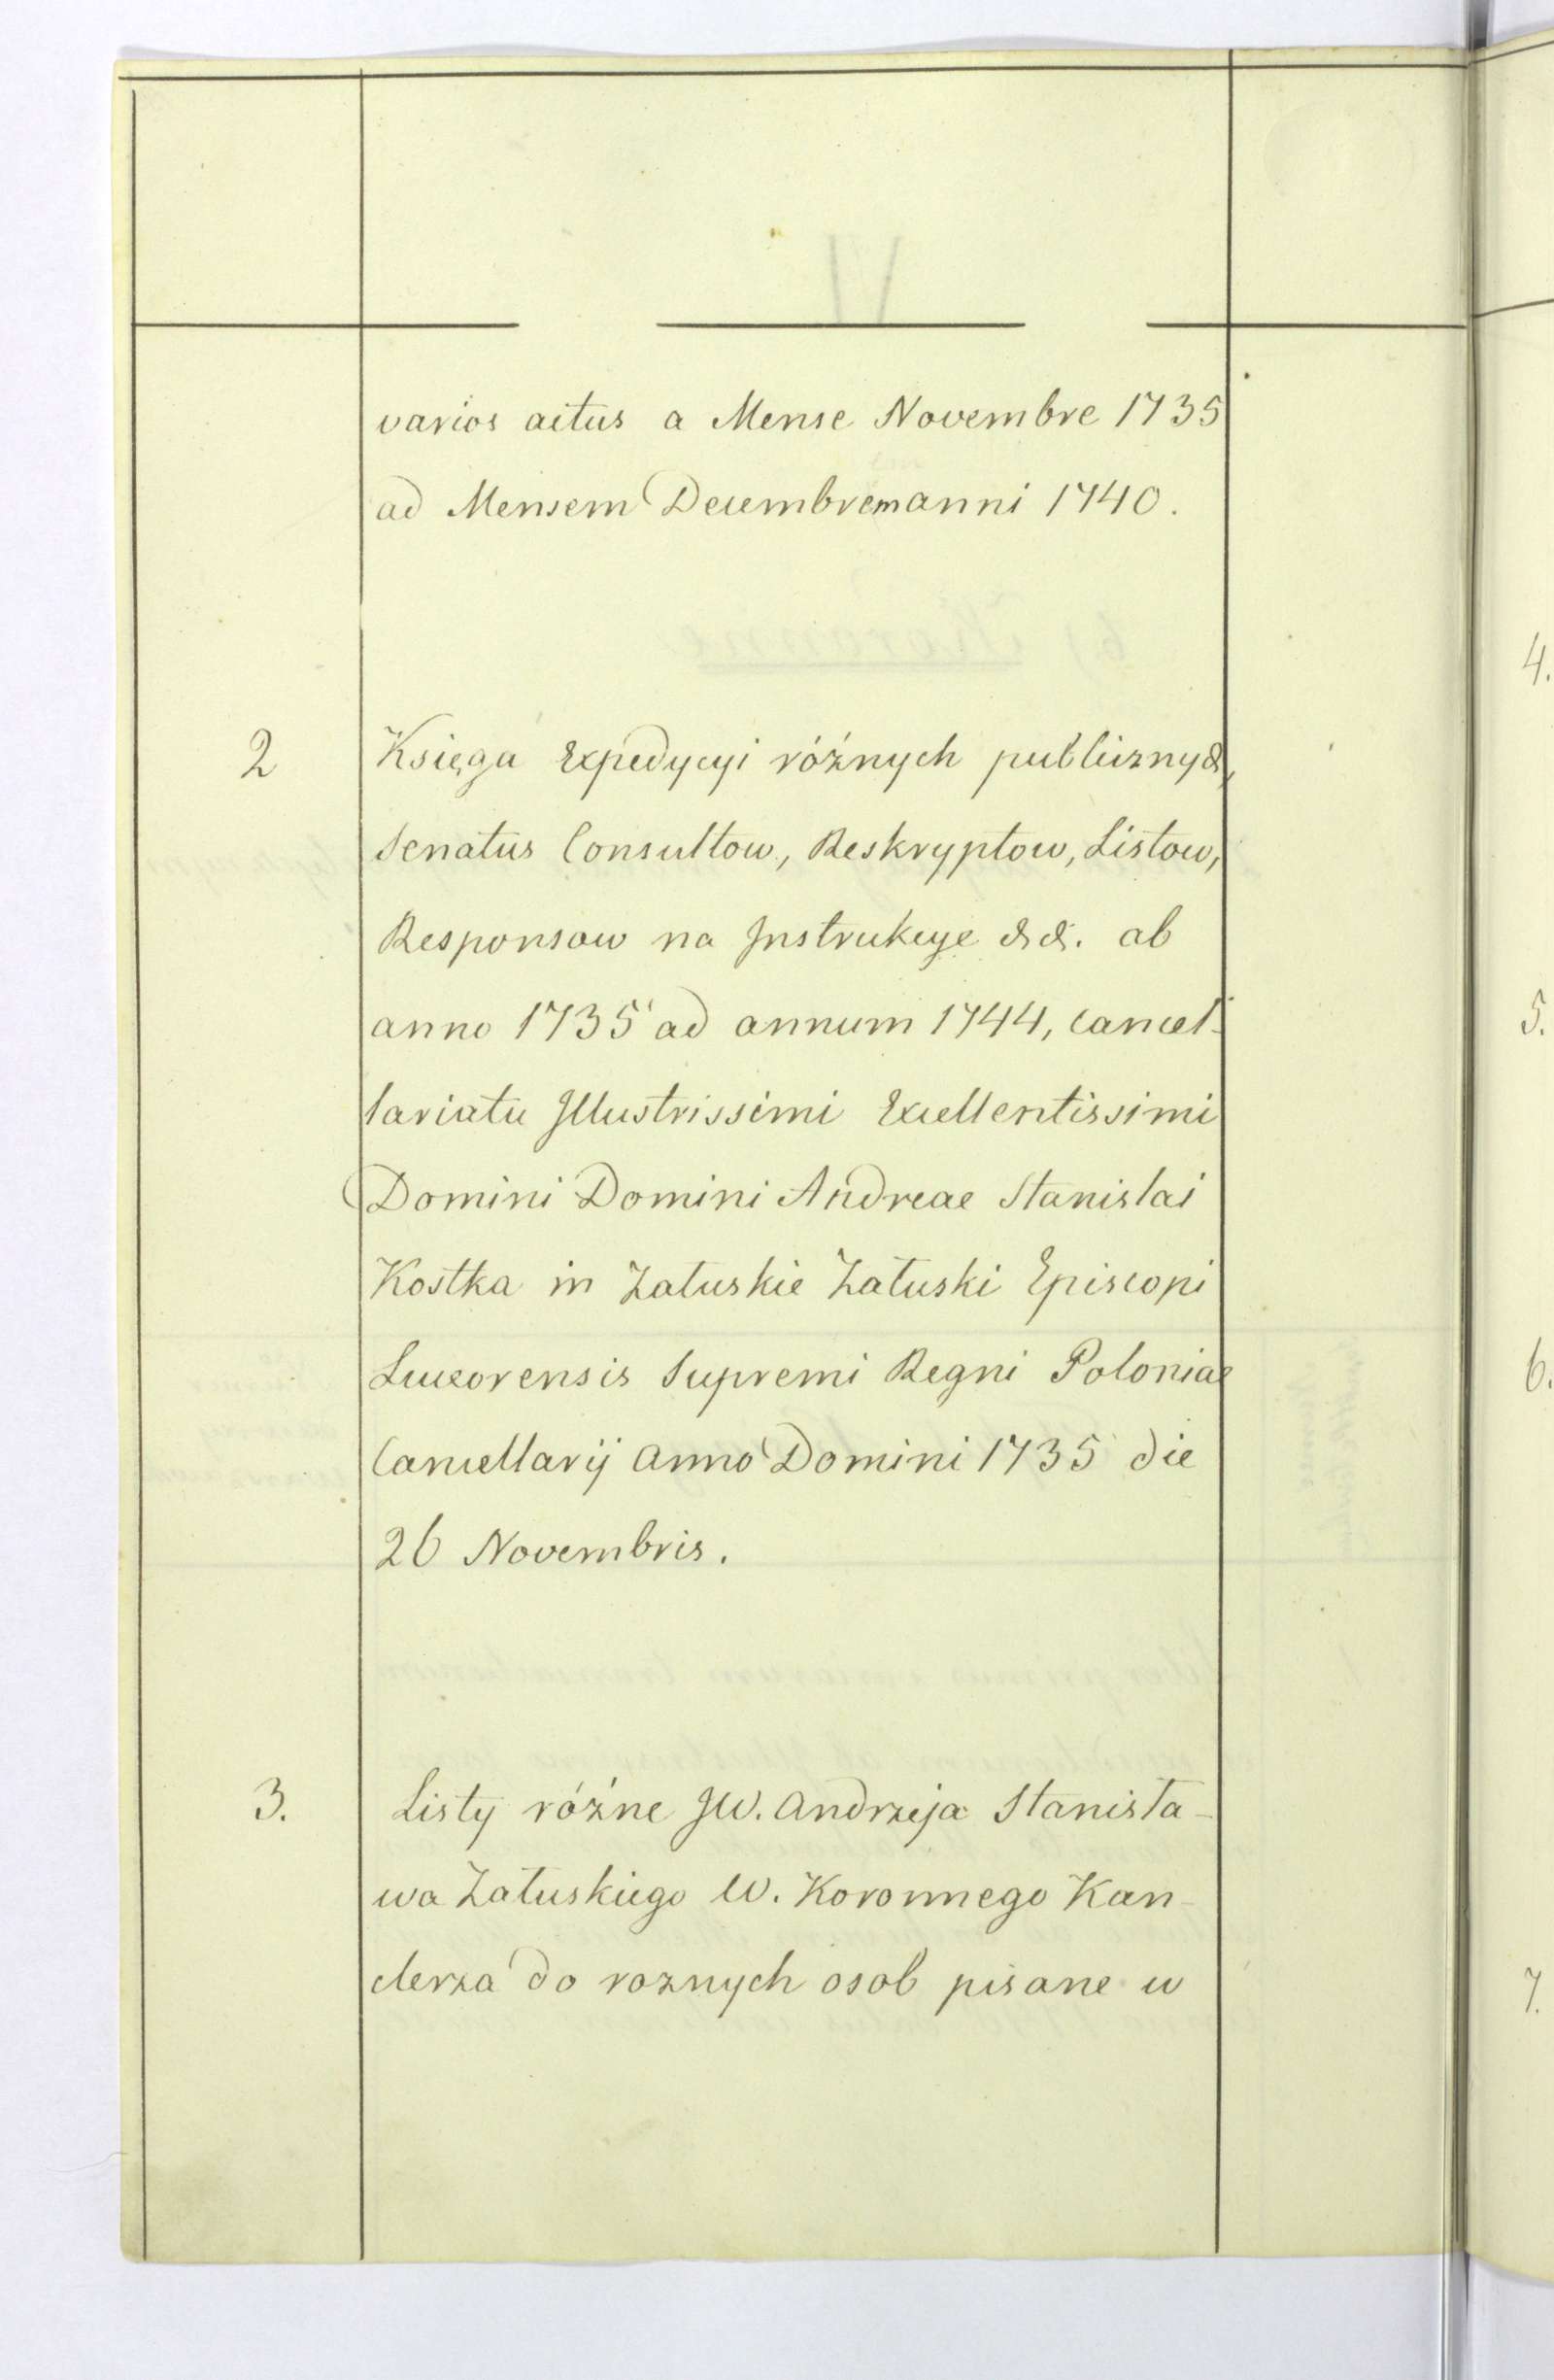 varios actus a Mense Novembre 1735
ad Mensem Decembrem anni 1740.
2 Księga Expedycyi różnych publicznych,
Senatus Consultow, Reskryptow, Listow,
Responsow na Instrukcye &&. ab
anno 1735 ad annum 1744, Cancel-
lariatu Illustrissimi Excellentissimi
Domini Domini Andreae Stanislai
Kostka in Załuskie Załuski Episcopi
Luceorensis Supremi Regni Poloniae
Cancellarij Anno Domini 1735 die
26 Novembris.
3. Listy różne JW. Andrzeja Stanisła-
wa Załuskiego W. Koronnego Kan-
clerza do roznych osob pisane w
4.
5.
6.
7.